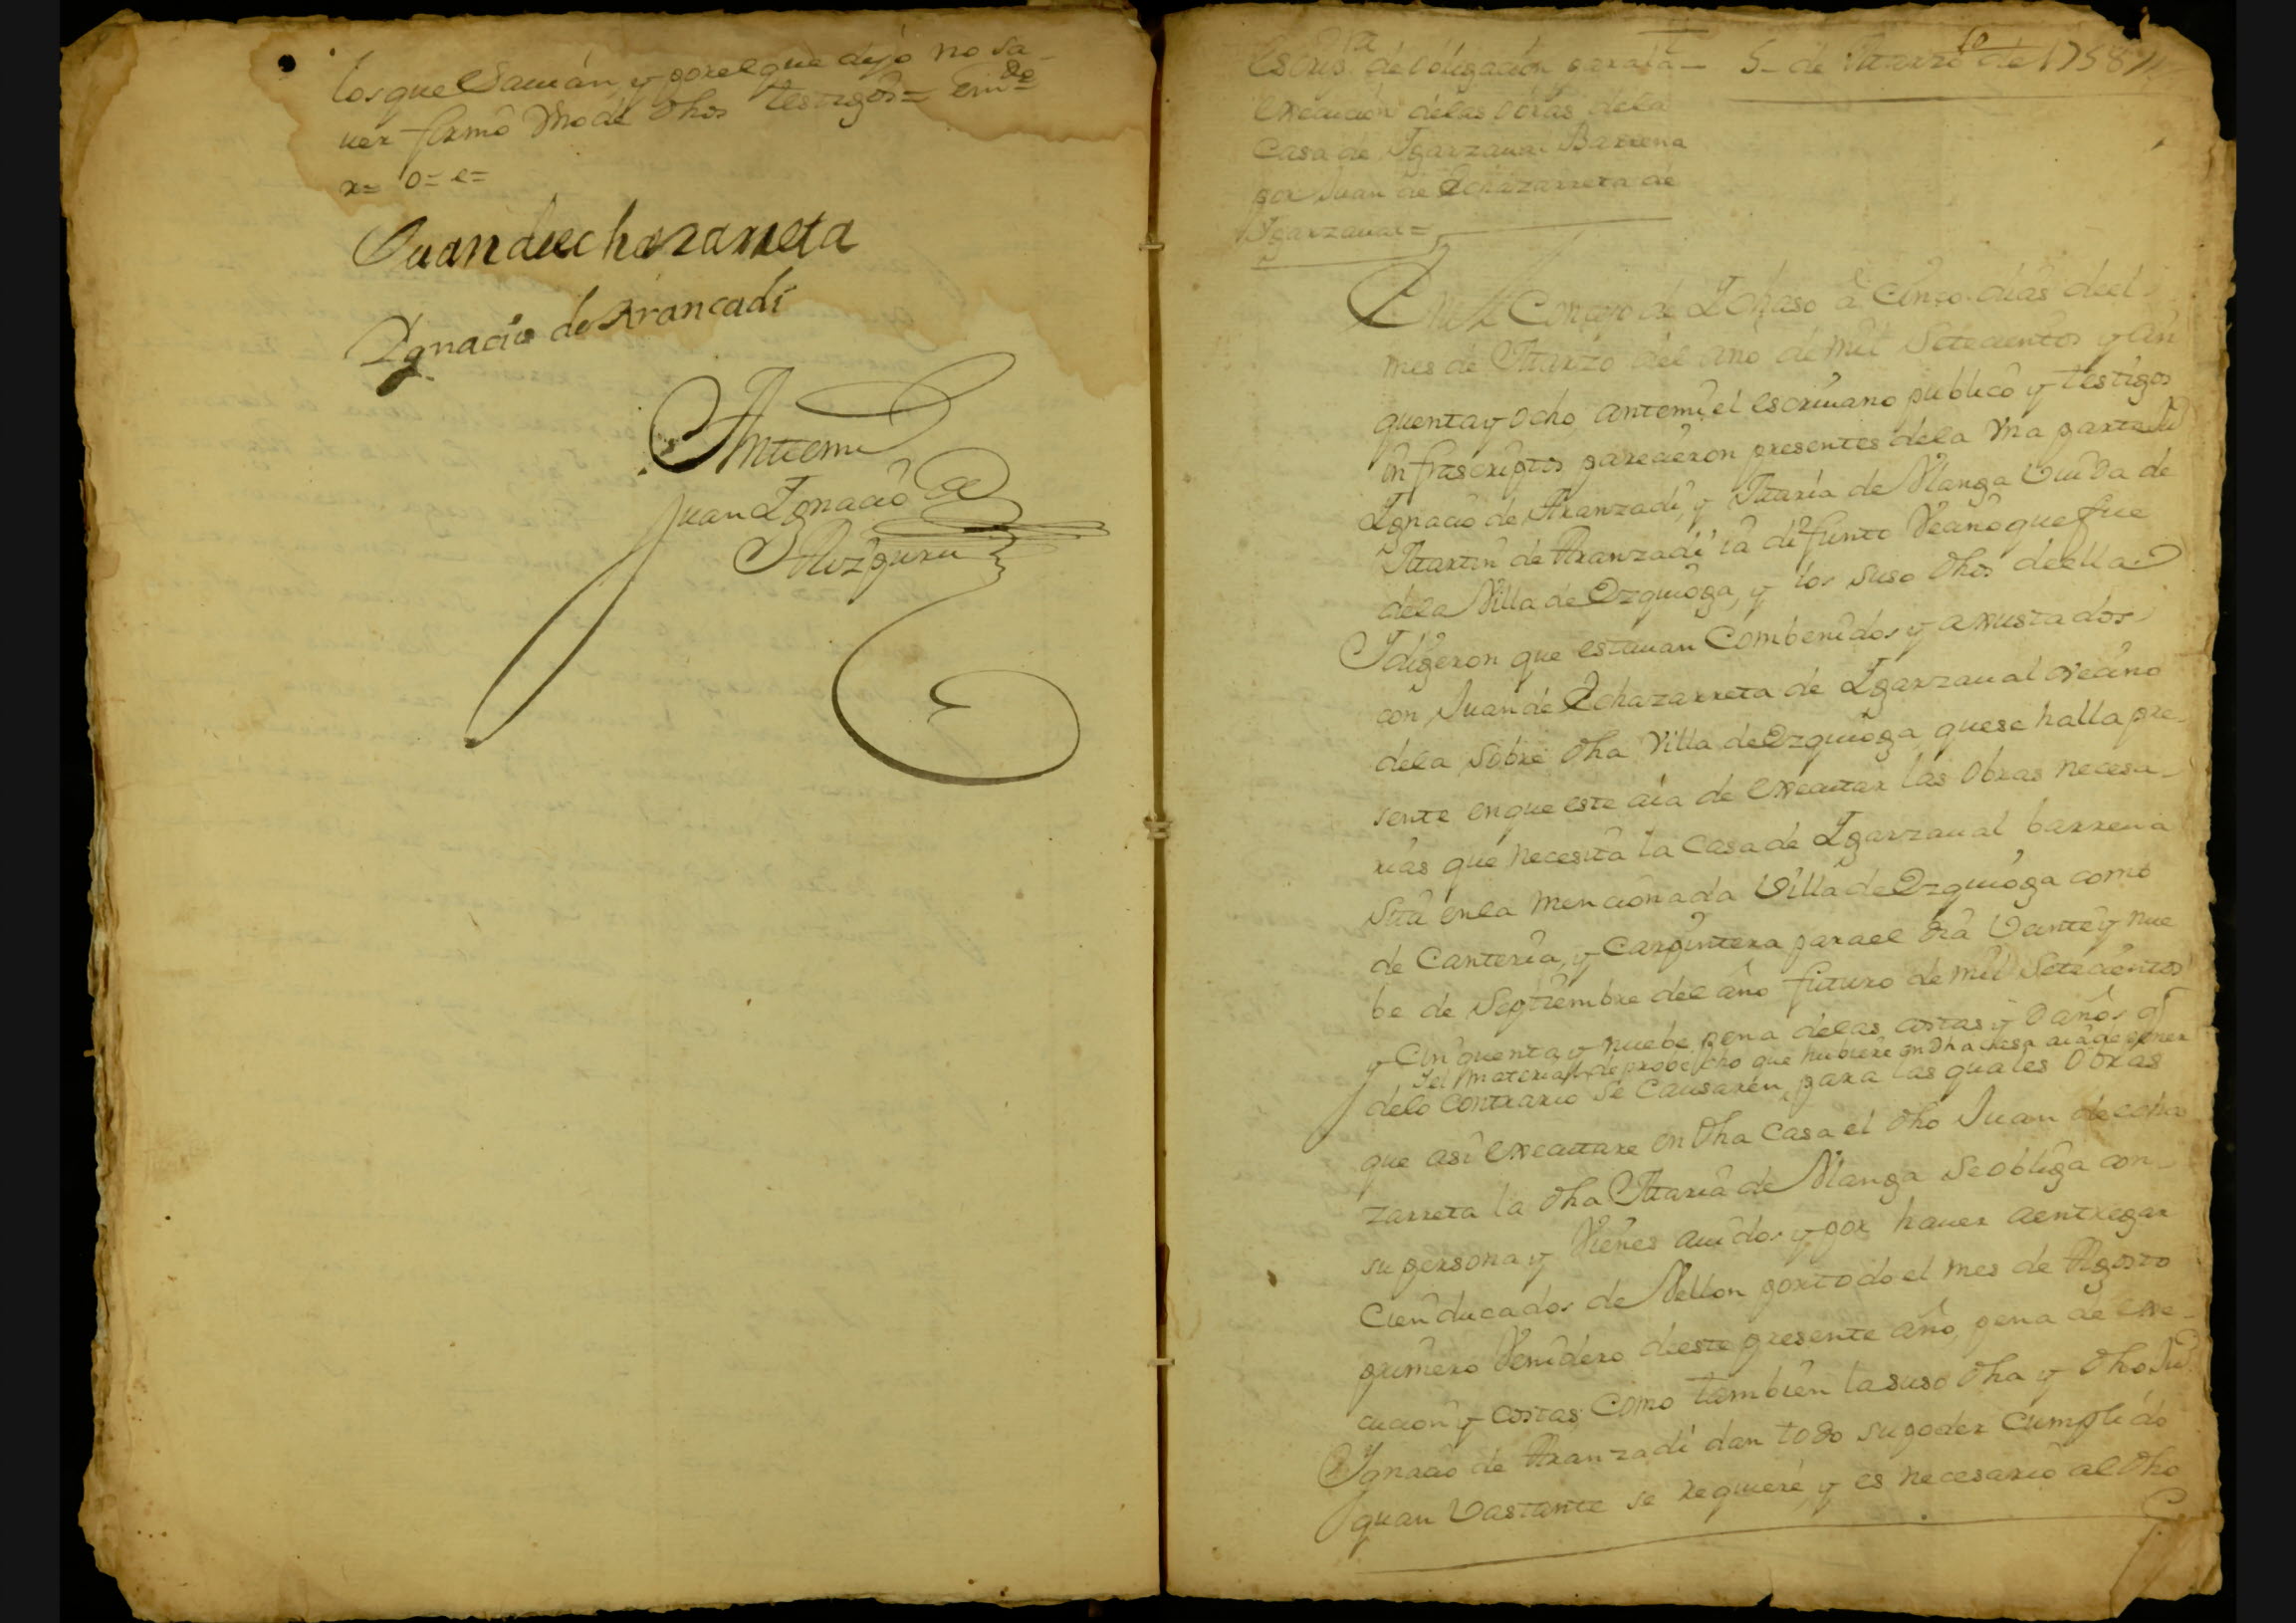 los que savian, y por el que dijo no sa-
uer firmó Vno de dhos testigos= em.do
x= o= e=
Juan deechazarreta
Ygnacio de Arancadi
Antemi
Juan Ygnacio de
Alozguru
Escrip.ra de obligacion para la
execucion de las obras dela
Casa de Ygarzaual Barrena
por Juan de Echazarreta de
Ygarzaual=
5- de Marzo de 1758
En el Concejo de Ychaso à cinco dias deel
mes de Marzo del año de mil Setecientos y cin
quenta y ocho antemi el escriuano publico y testigos
infrascriptos parecieron presentes dela Vna parte Ju
Ygnacio de Aranzadi, y Maria de Alanga Viuda de
Martin de Aranzadi ia difunto Vecino que fue
dela Villa de Ezquioga, y los suso dhos deella
Y digeron que estauan Combenidos y axustados
con Juan de Echazarreta de Ygarzaual vecino
dela sobre dha Villa de Ezquioga, que se halla pre-
sente en que este aia de executar las obras necesa-
rias que necesita la Casa de Ygarzaual barrena
Sita en la mencionada Villa de Ezquioga como
de Canteria, y Carpinteria para el dia Veinte y nue
be de Septiembre del año futuro de mil Setecientos
y Cinquenta y nuebe pena delas costas y Daños q
Y el material de probecho que hubiere en dha casa aia de poner
delo contrario se Causaren, para las quales Obras
que asi executare en dha Casa el dho Juan de echa
zarreta la dha Maria de Alanga Se obliga con
su persona y Vienes auidos y por hauer aentregar
Cien ducados de Vellon por todo el mes de Agosto
primero Venidero deeste presente año, pena de exe-
cucion y costas Como tambien la suso dha y dho Ju
Ygnacio de Aranzadi dan todo su poder Cumplido
quan Vastante se requiere, y es necesario al dho